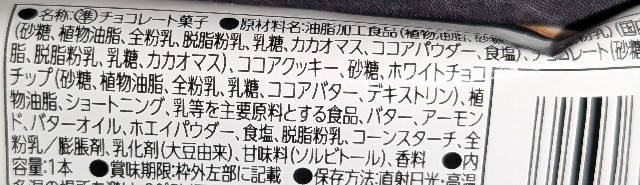 ●名称:準チョコレート菓子 ●原材料名:油脂加工食品(植物油脂、砂糖
(砂糖、植物油脂、全粉乳、脱脂粉乳、乳糖、カカオマス、ココアパウダー、食塩)、チョコレート(砂糖
脂、脱脂粉乳、乳糖、カカオマス)、ココアクッキー、砂糖、ホワイトチョコ
チップ(砂糖、植物油脂、全粉乳、乳糖、ココアバター、デキストリン)、植
物油脂、ショートニング、乳等を主要原料とする食品、バター、アーモン
ド、バターオイル、ホエイパウダー、食塩、脱脂粉乳、コーンスターチ、全
粉乳/膨脹剤、乳化剤(大豆由来)、甘味料(ソルビトール)、香料 ●内
容量:1本 ●賞味期限:枠外左部に記載 ●保存方法:直射日光・高温